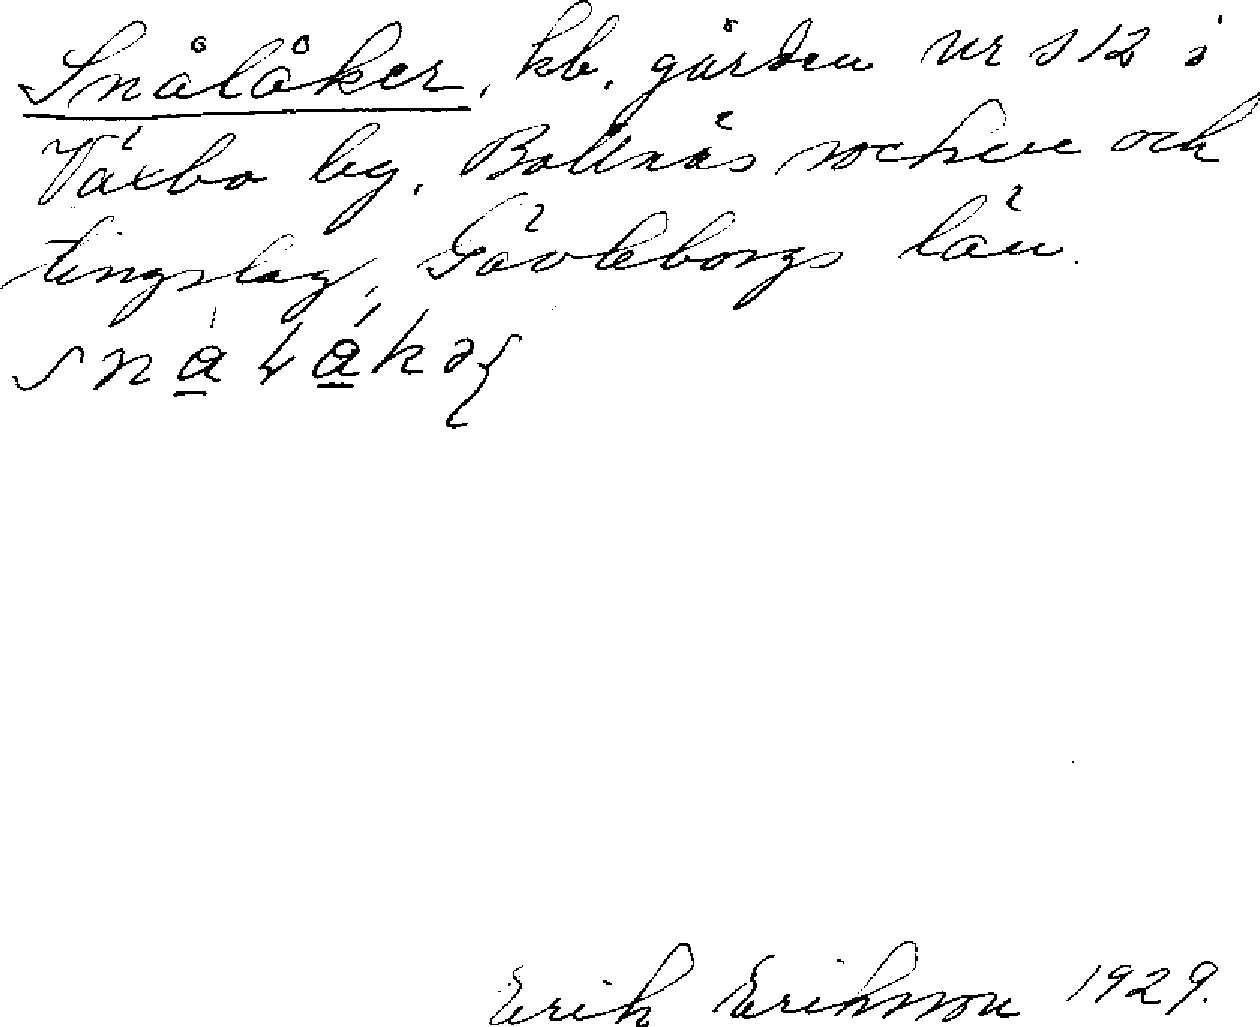 Snålåker, kb. gården Nr s 12 i
Växbo by, Bollnäs socken och
tingslag, Gävleborgs län.
Erik Eriksson 1929.